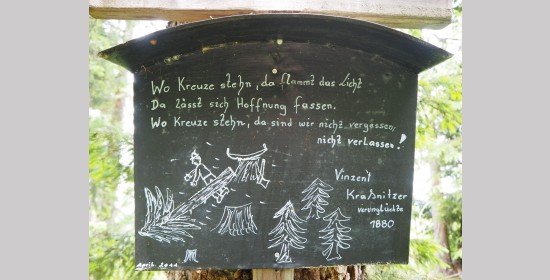 Wo Kreuze stehn, da flammt das Licht
Da lässt sich Hoffnung fassen.
Wo Kreuze stehn, da sind wir nicht vergessen,
nicht verlassen!
Vinzent
Kraßnitzer
verunglückte
1880
April. 2011